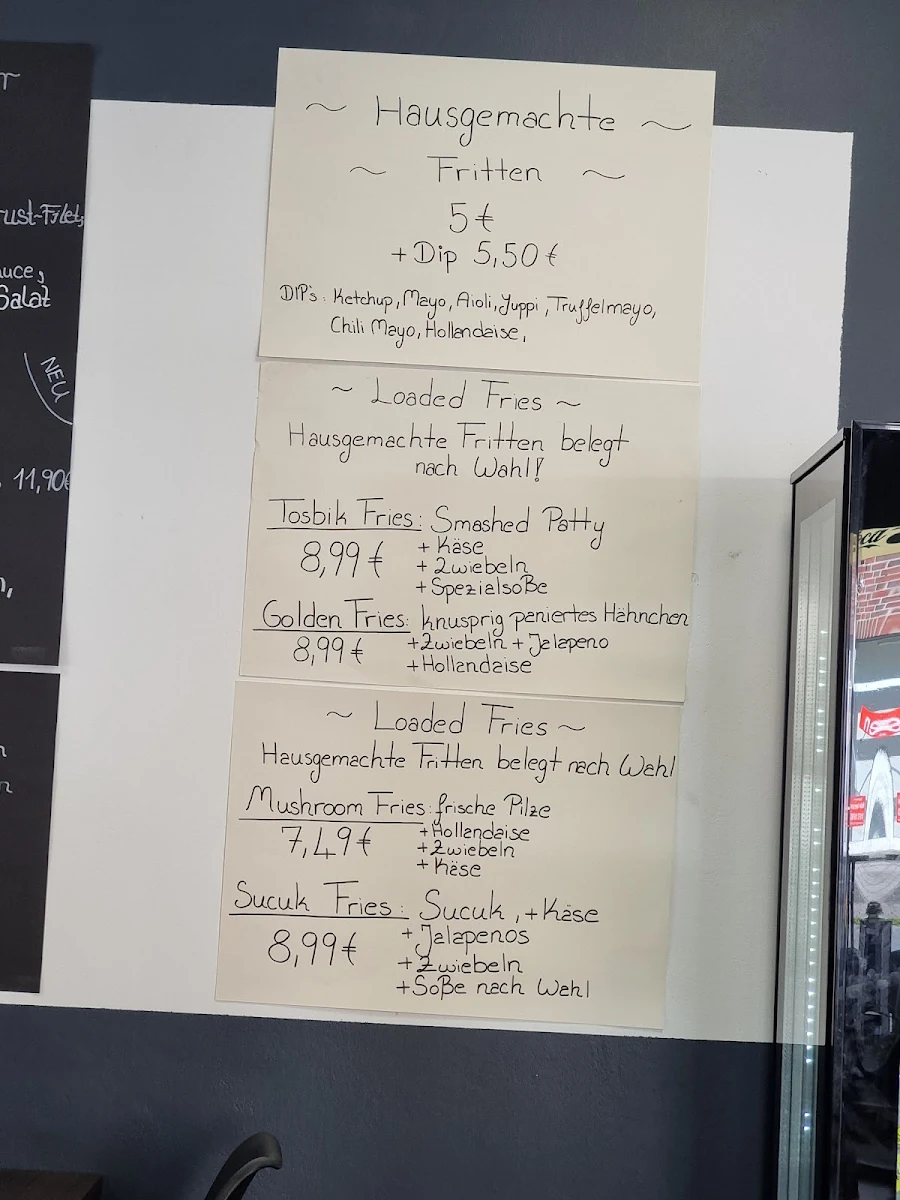 rust-Filet,
uce,
Salat
NEU
11,90€
~ Hausgemachte ~
~ Fritten ~
5 €
+ Dip 5,50 €
DIP's: Ketchup, Mayo, Aioli, Juppi, Truffelmayo,
Chili Mayo, Hollandaise,
~ Loaded Fries ~
Hausgemachte Fritten belegt
nach Wahl!
Tosbik Fries: Smashed Patty
8,99 € + Käse
+ Zwiebeln
+ Spezialsoße
Golden Fries: knusprig paniertes Hähnchen
8,99 € + Zwiebeln + Jalapeno
+ Hollandaise
~ Loaded Fries ~
Hausgemachte Fritten belegt nach Wahl
Mushroom Fries: frische Pilze
7,49 € + Hollandaise
+ Zwiebeln
+ Käse
Sucuk Fries: Sucuk, + Käse
8,99 € + Jalapenos
+ Zwiebeln
+ Soße nach Wahl